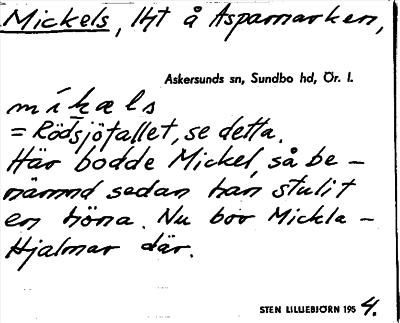 Mickels, lht å Aspamarken,
Askersunds sn, Sundbo hd, Ör. l.
míkæls
= Rödsjötallet, se detta.
Här bodde Mickel, så be-
nämnd sedan han stulit
en höna. Nu bor Mickla-
Hjalmar där.
STEN LILLIEBJÖRN 1954.